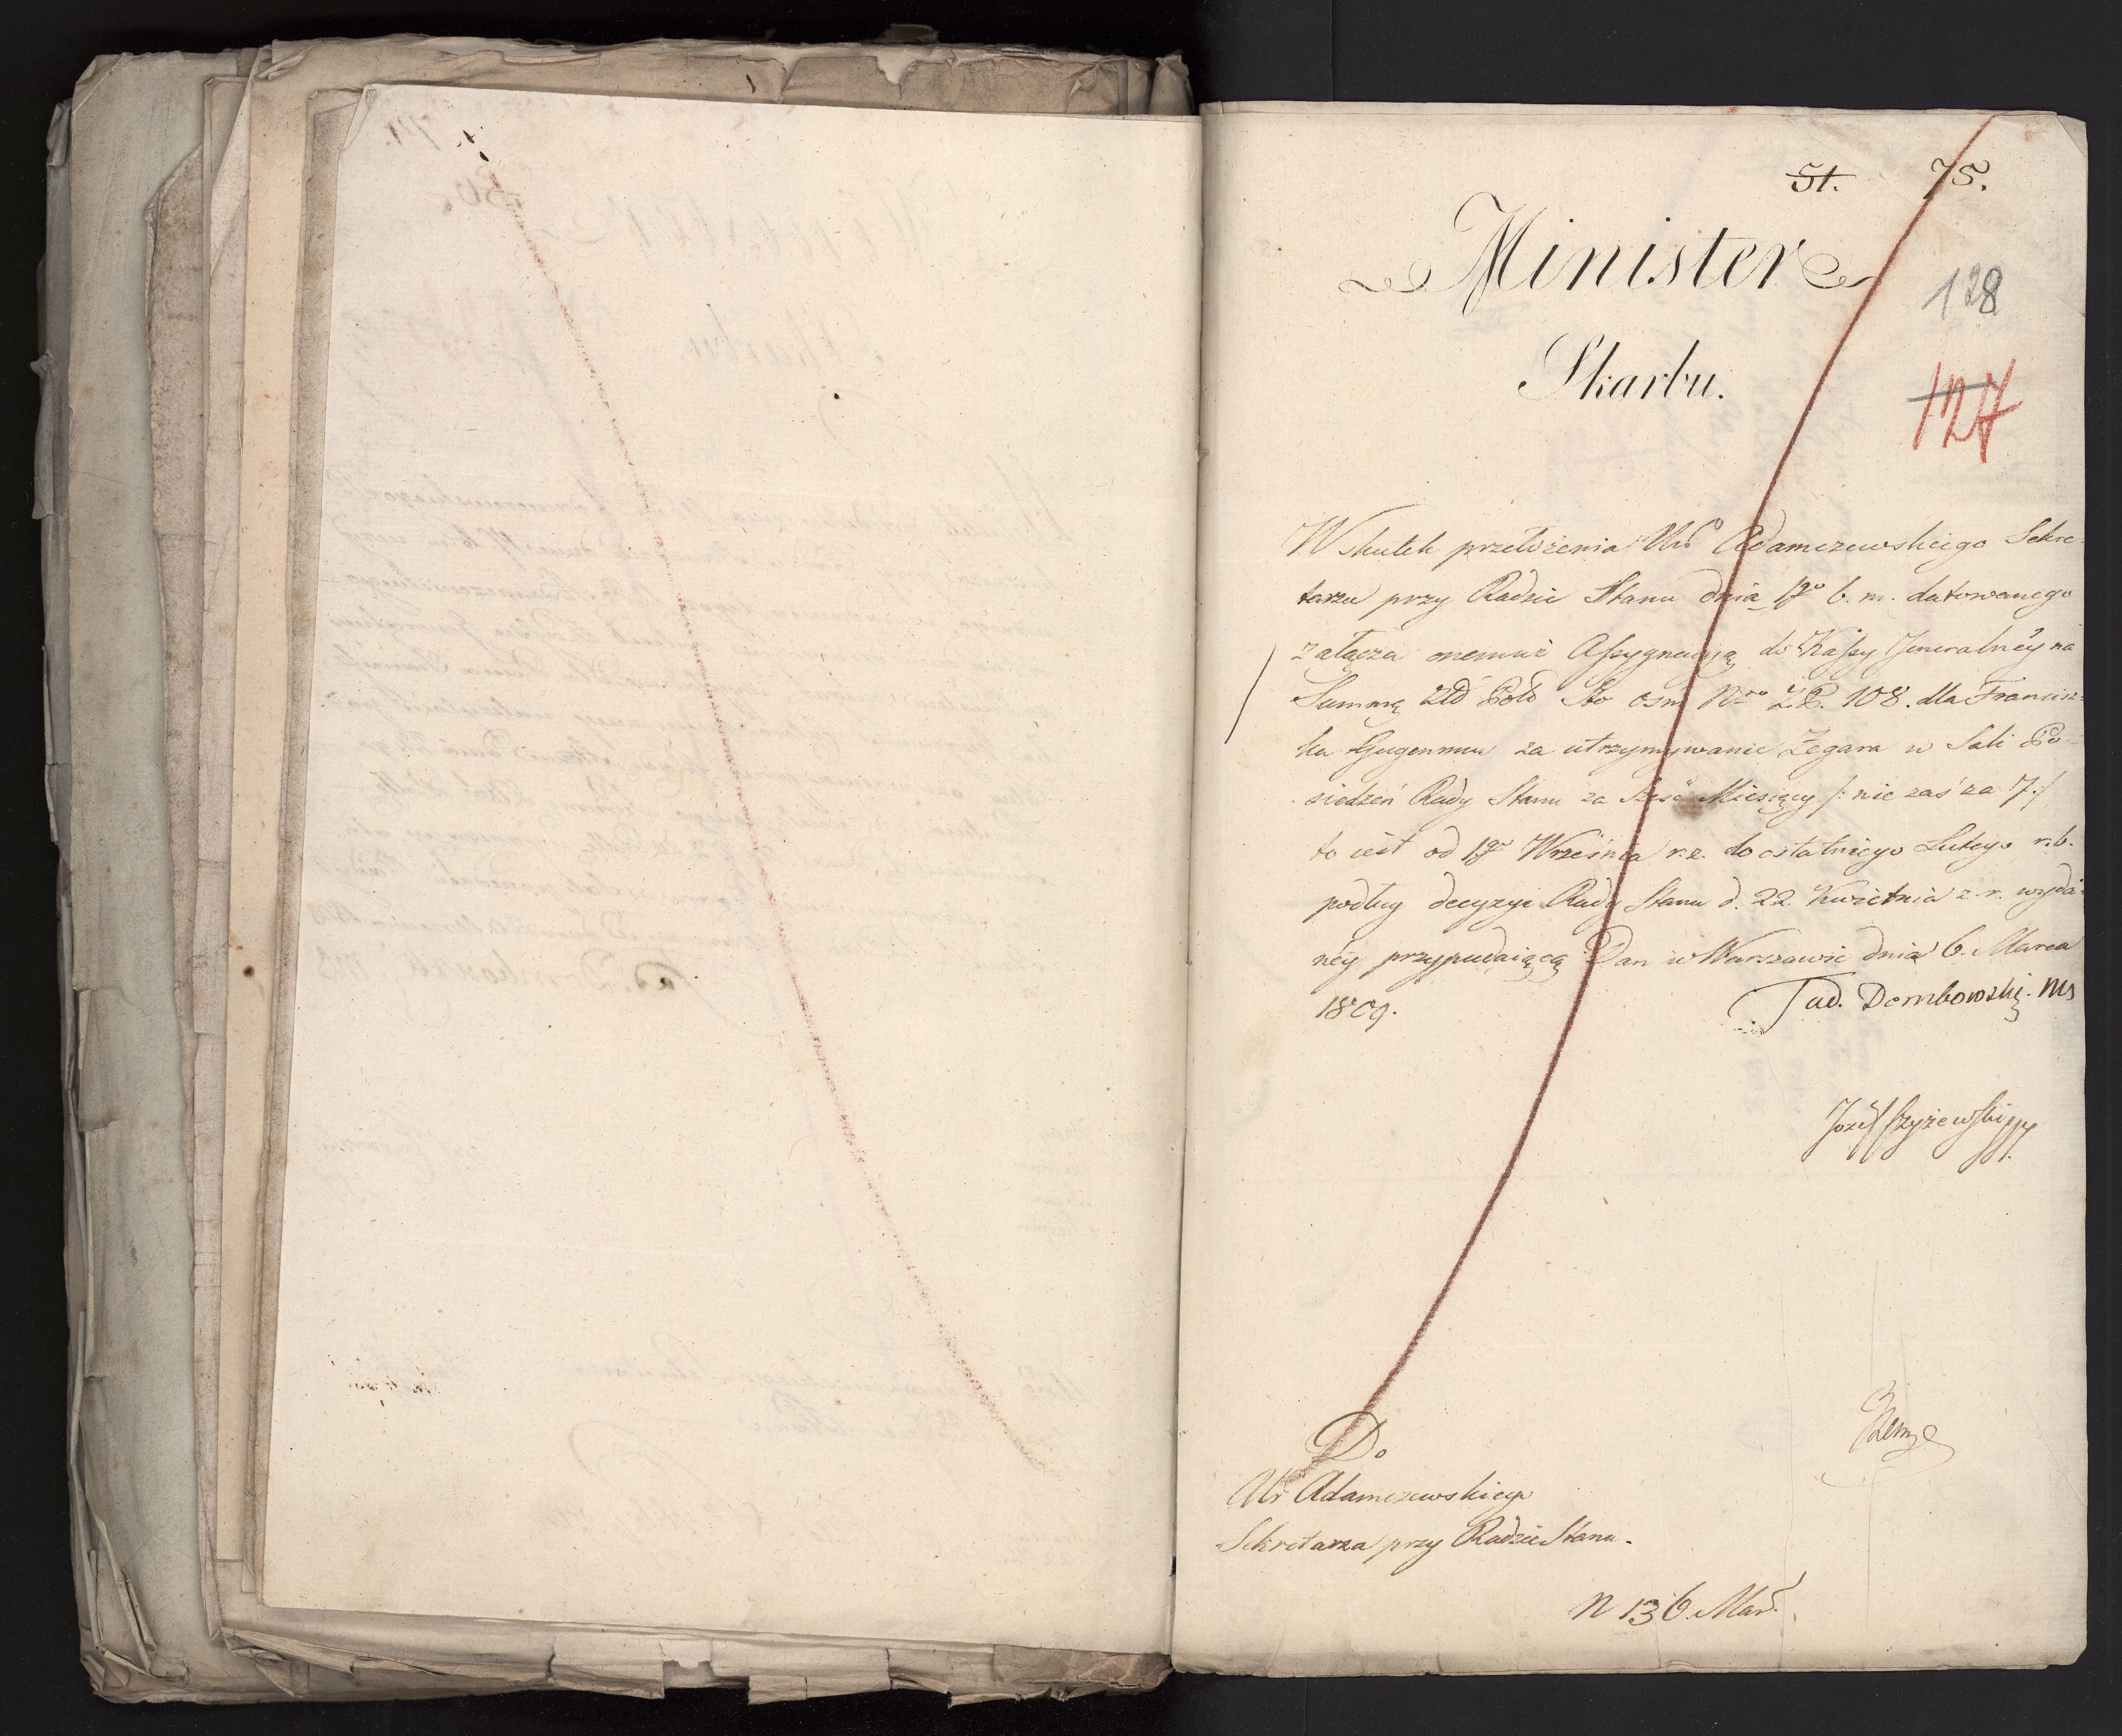 51. 75.
Minister
128
Skarbu.
127
W skutek przełożenia Ur Adamczewskiego Sekre-
tarza przy Radzie Stanu dnia 1go b. m. datowanego
załącza onemuż Assygnacyią do Kassy Jeneralnéy na
Summę Zło Pols Sto osm Nro Z.P. 108. dla Francisz-
ka Gugenmus za utrzymywanie Zegara w Sali Po-
siedzeń Rady Stanu za Sześć Miesięcy /: nie zaś za 7 :/
to iest od 1go Września r. z. do ostatniego Lutego r. b.
podług decyzyi Rady Stanu d. 22 Kwietnia z. r. wyda-
néy przypadaiącą Dan w Warszawie dnia 6. Marca
1809. Tad. Dembowski. MS
Józef Czyżewski
Do
Ur Adamczewskiego
Sekretarza przy Radzie Stanu.
N 136. Mar.